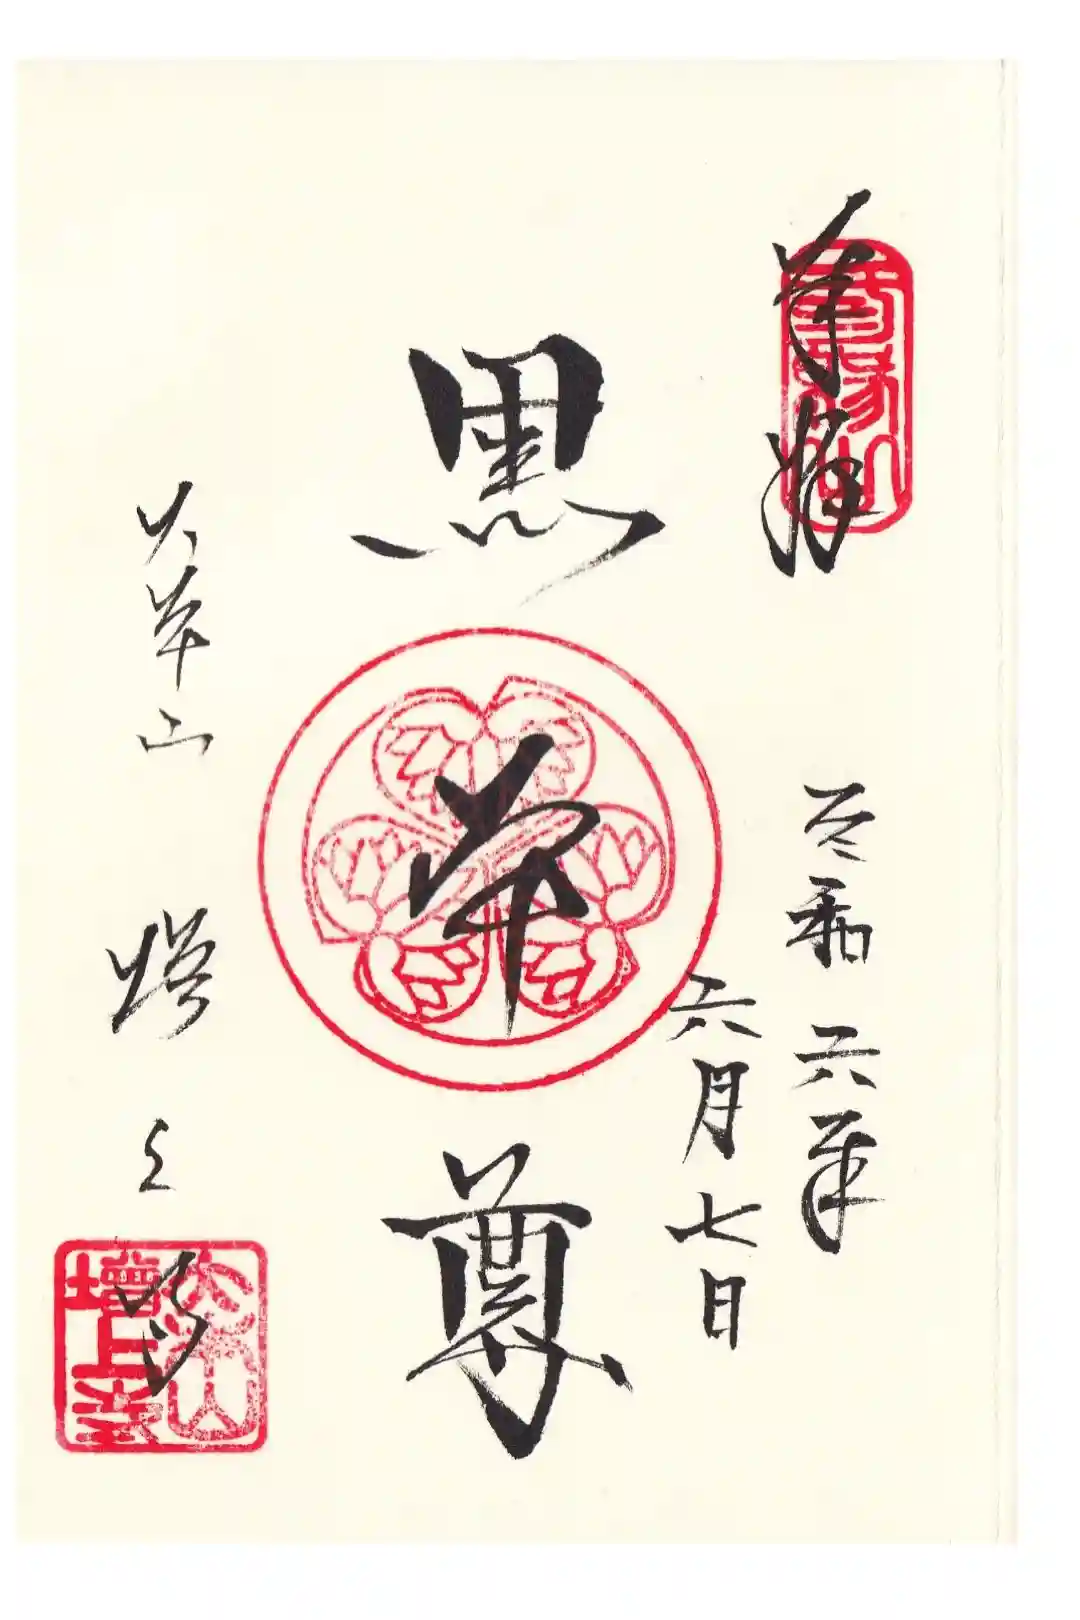 奉拝
令和六年
六月七日
黒本尊
大本山 増上寺
大本山
増上寺